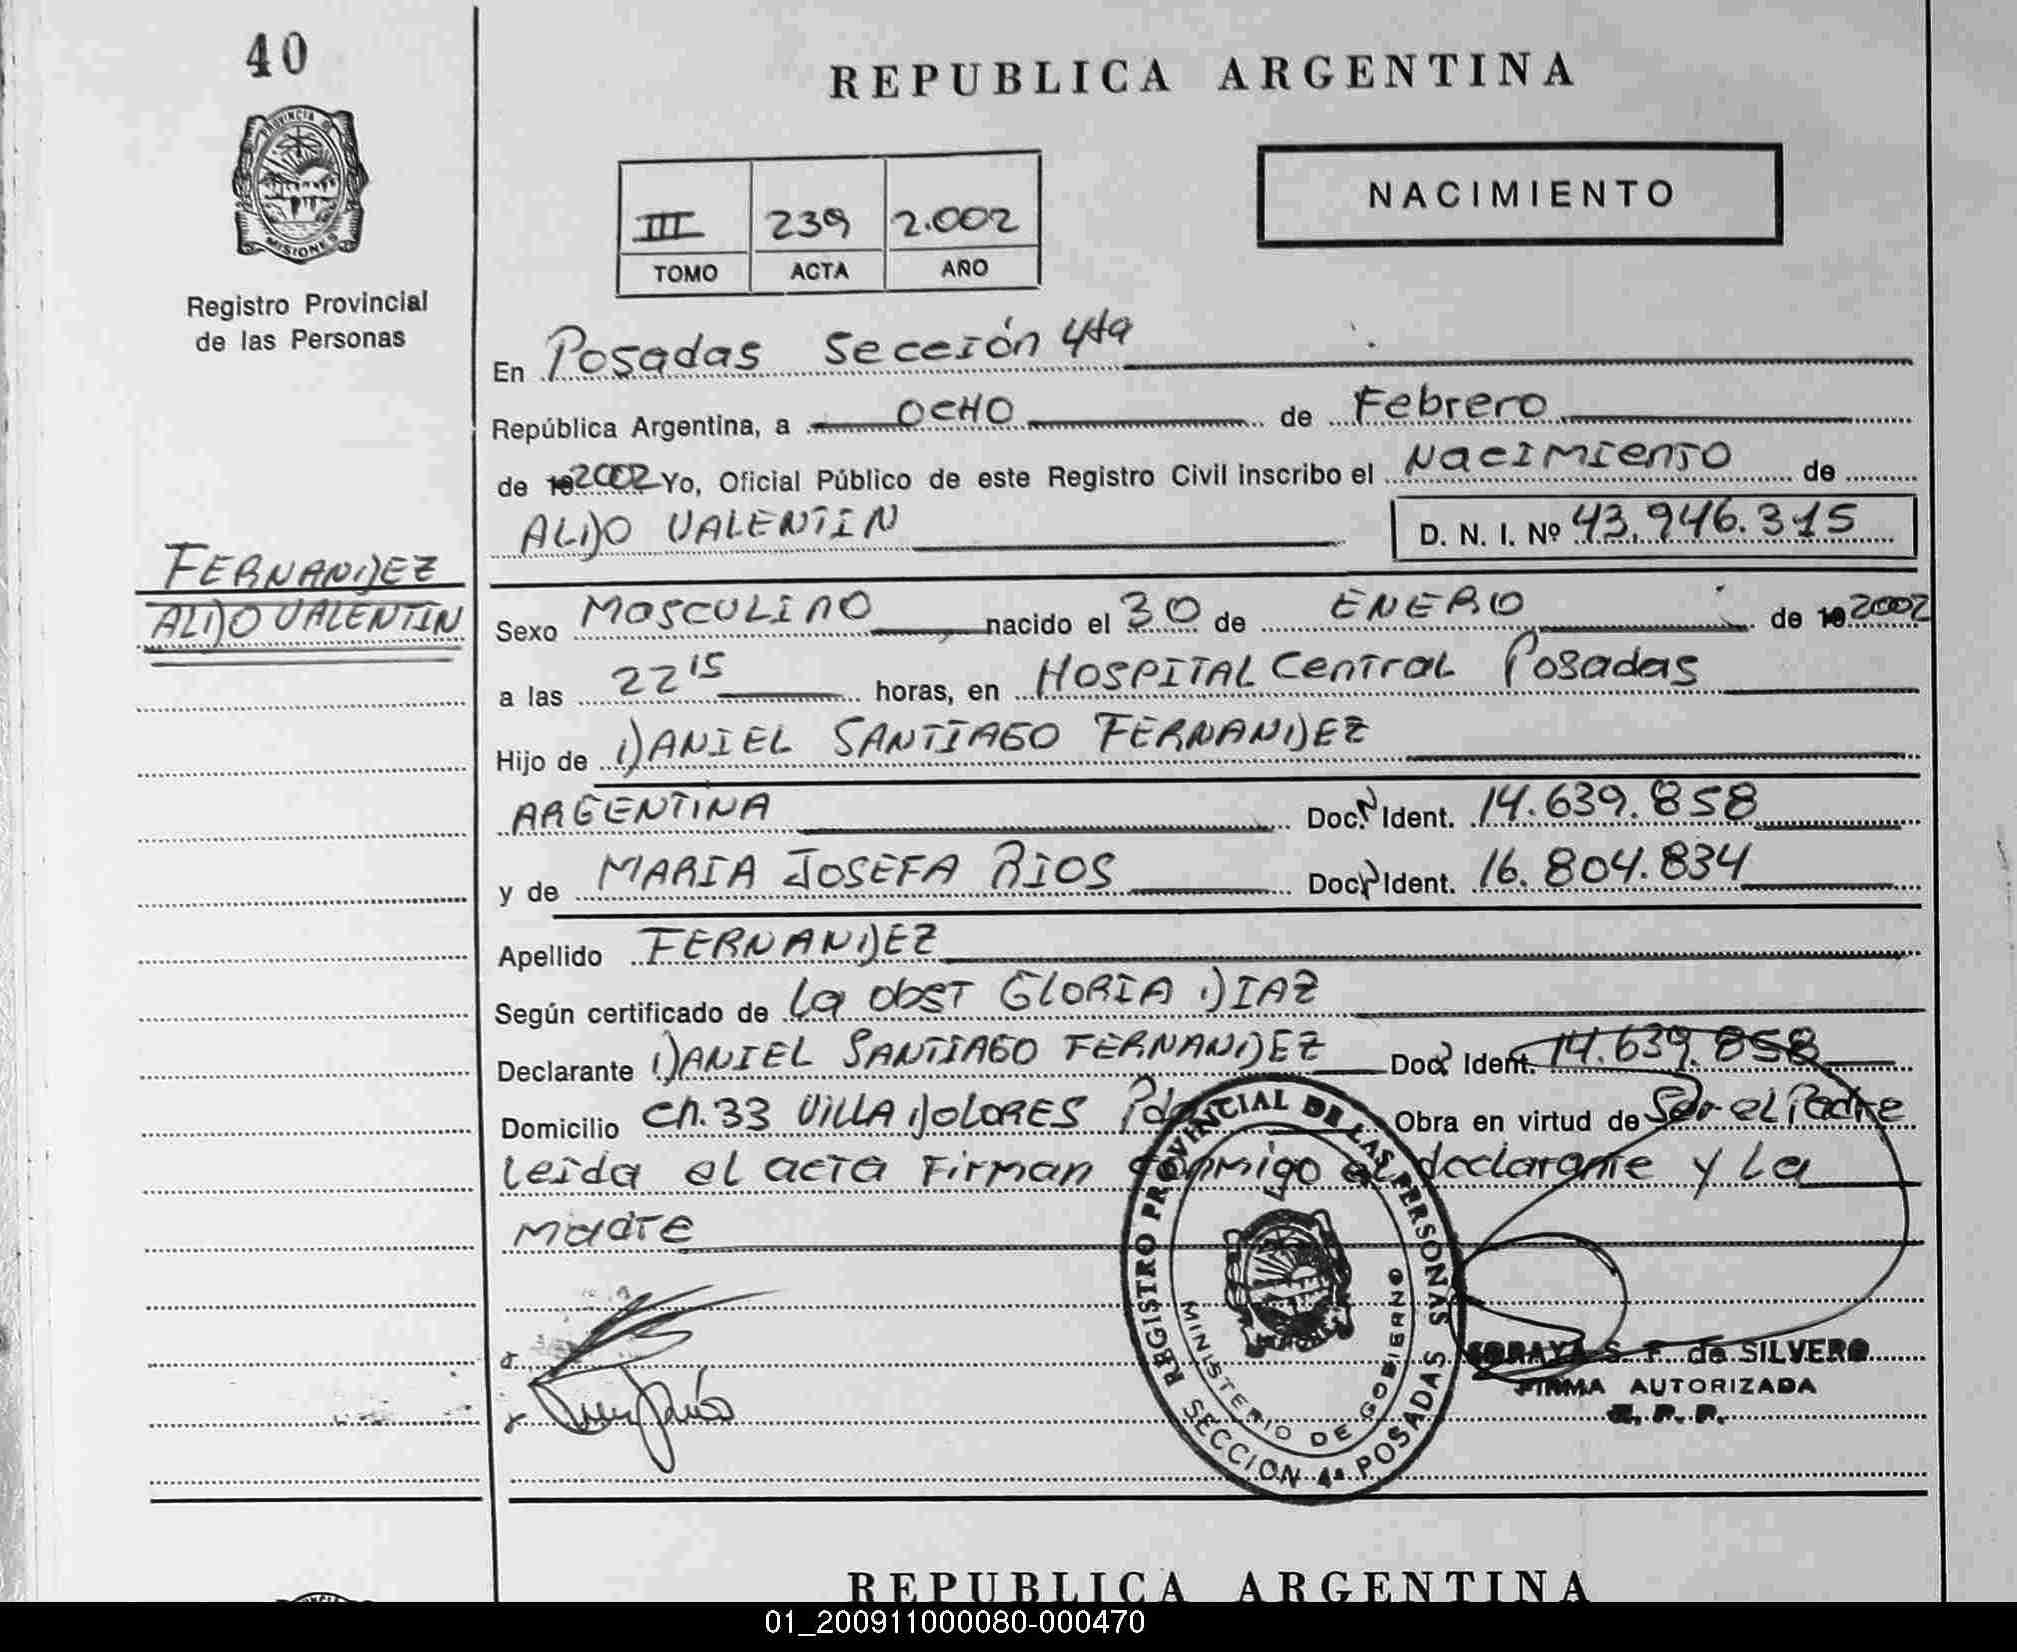 40
PROVINCIA DE
MISIONES
Registro Provincial
de las Personas
FERNANDEZ
ALDO VALENTIN
REPUBLICA ARGENTINA
NACIMIENTO
III 239 2.002
TOMO ACTA AÑO
En Posadas Seceión 4ta
República Argentina, a OCHO de Febrero
de 192002 Yo, Oficial Público de este Registro Civil inscribo el NaciMienTo de
ALDO VALENTIN D. N. I. Nº 43.946.315
Sexo MOSCULINO nacido el 30 de ENERO de 192002
a las 22 15 horas, en HOSPITAL Central Posadas
Hijo de DANIEL SANTIAGO FERNANDEZ
ARGENTINA Doc. Ident. 14.639.858
y de MARIA JOSEFA RIOS Doc. Ident. 16.804.834
Apellido FERNANDEZ
Según certificado de La obsT GLORIA DIAZ
Declarante DANIEL SANTIAGO FERNANDEZ Doc. Ident. 14.639.858
Domicilio Ch.33 VILLA DOLORES Obra en virtud de Ser el Padre
Leida el acTa Firman conmigo el declarante y La
Madre
REGISTRO PROVINCIAL DE LAS PERSONAS
MINISTERIO DE GOBIERNO
SECCION 4ª POSADAS
SORAYA S. F. de SILVERO
FIRMA AUTORIZADA
REPUBLICA ARGENTINA
01_200911000080-000470